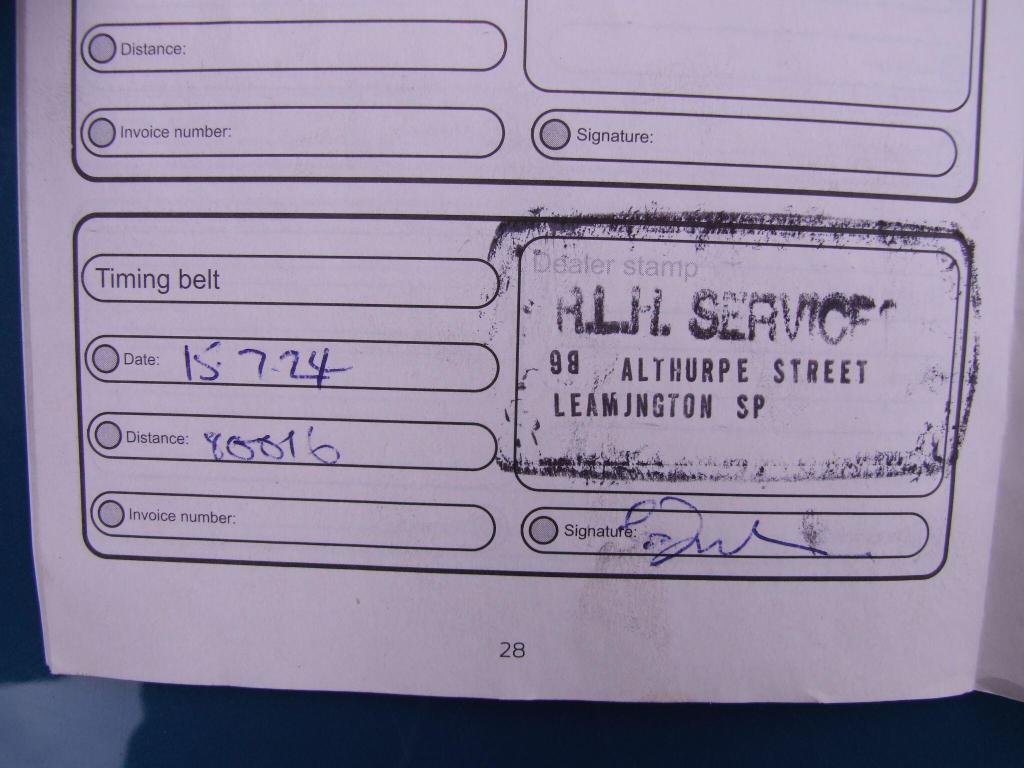 Distance:
Invoice number:
Signature:
Timing belt
Dealer stamp
R.L.H. SERVICES
98 ALTHURPE STREET
LEAMJNGTON SP
Date: 15.7.24
Distance: 80016
Invoice number:
Signature:
28